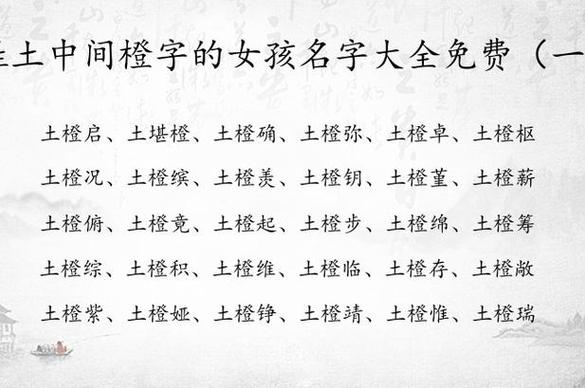 姓土中间橙字的女孩名字大全免费（一
土橙启、土堪橙、土橙确、土橙弥、土橙卓、土橙枢
土橙况、土橙缤、土橙羡、土橙钥、土橙堇、土橙薪
土橙俯、土橙竟、土橙起、土橙步、土橙绵、土橙筹
土橙综、土橙积、土橙维、土橙临、土橙存、土橙敞
土橙紫、土橙娅、土橙铮、土橙靖、土橙惟、土橙瑞